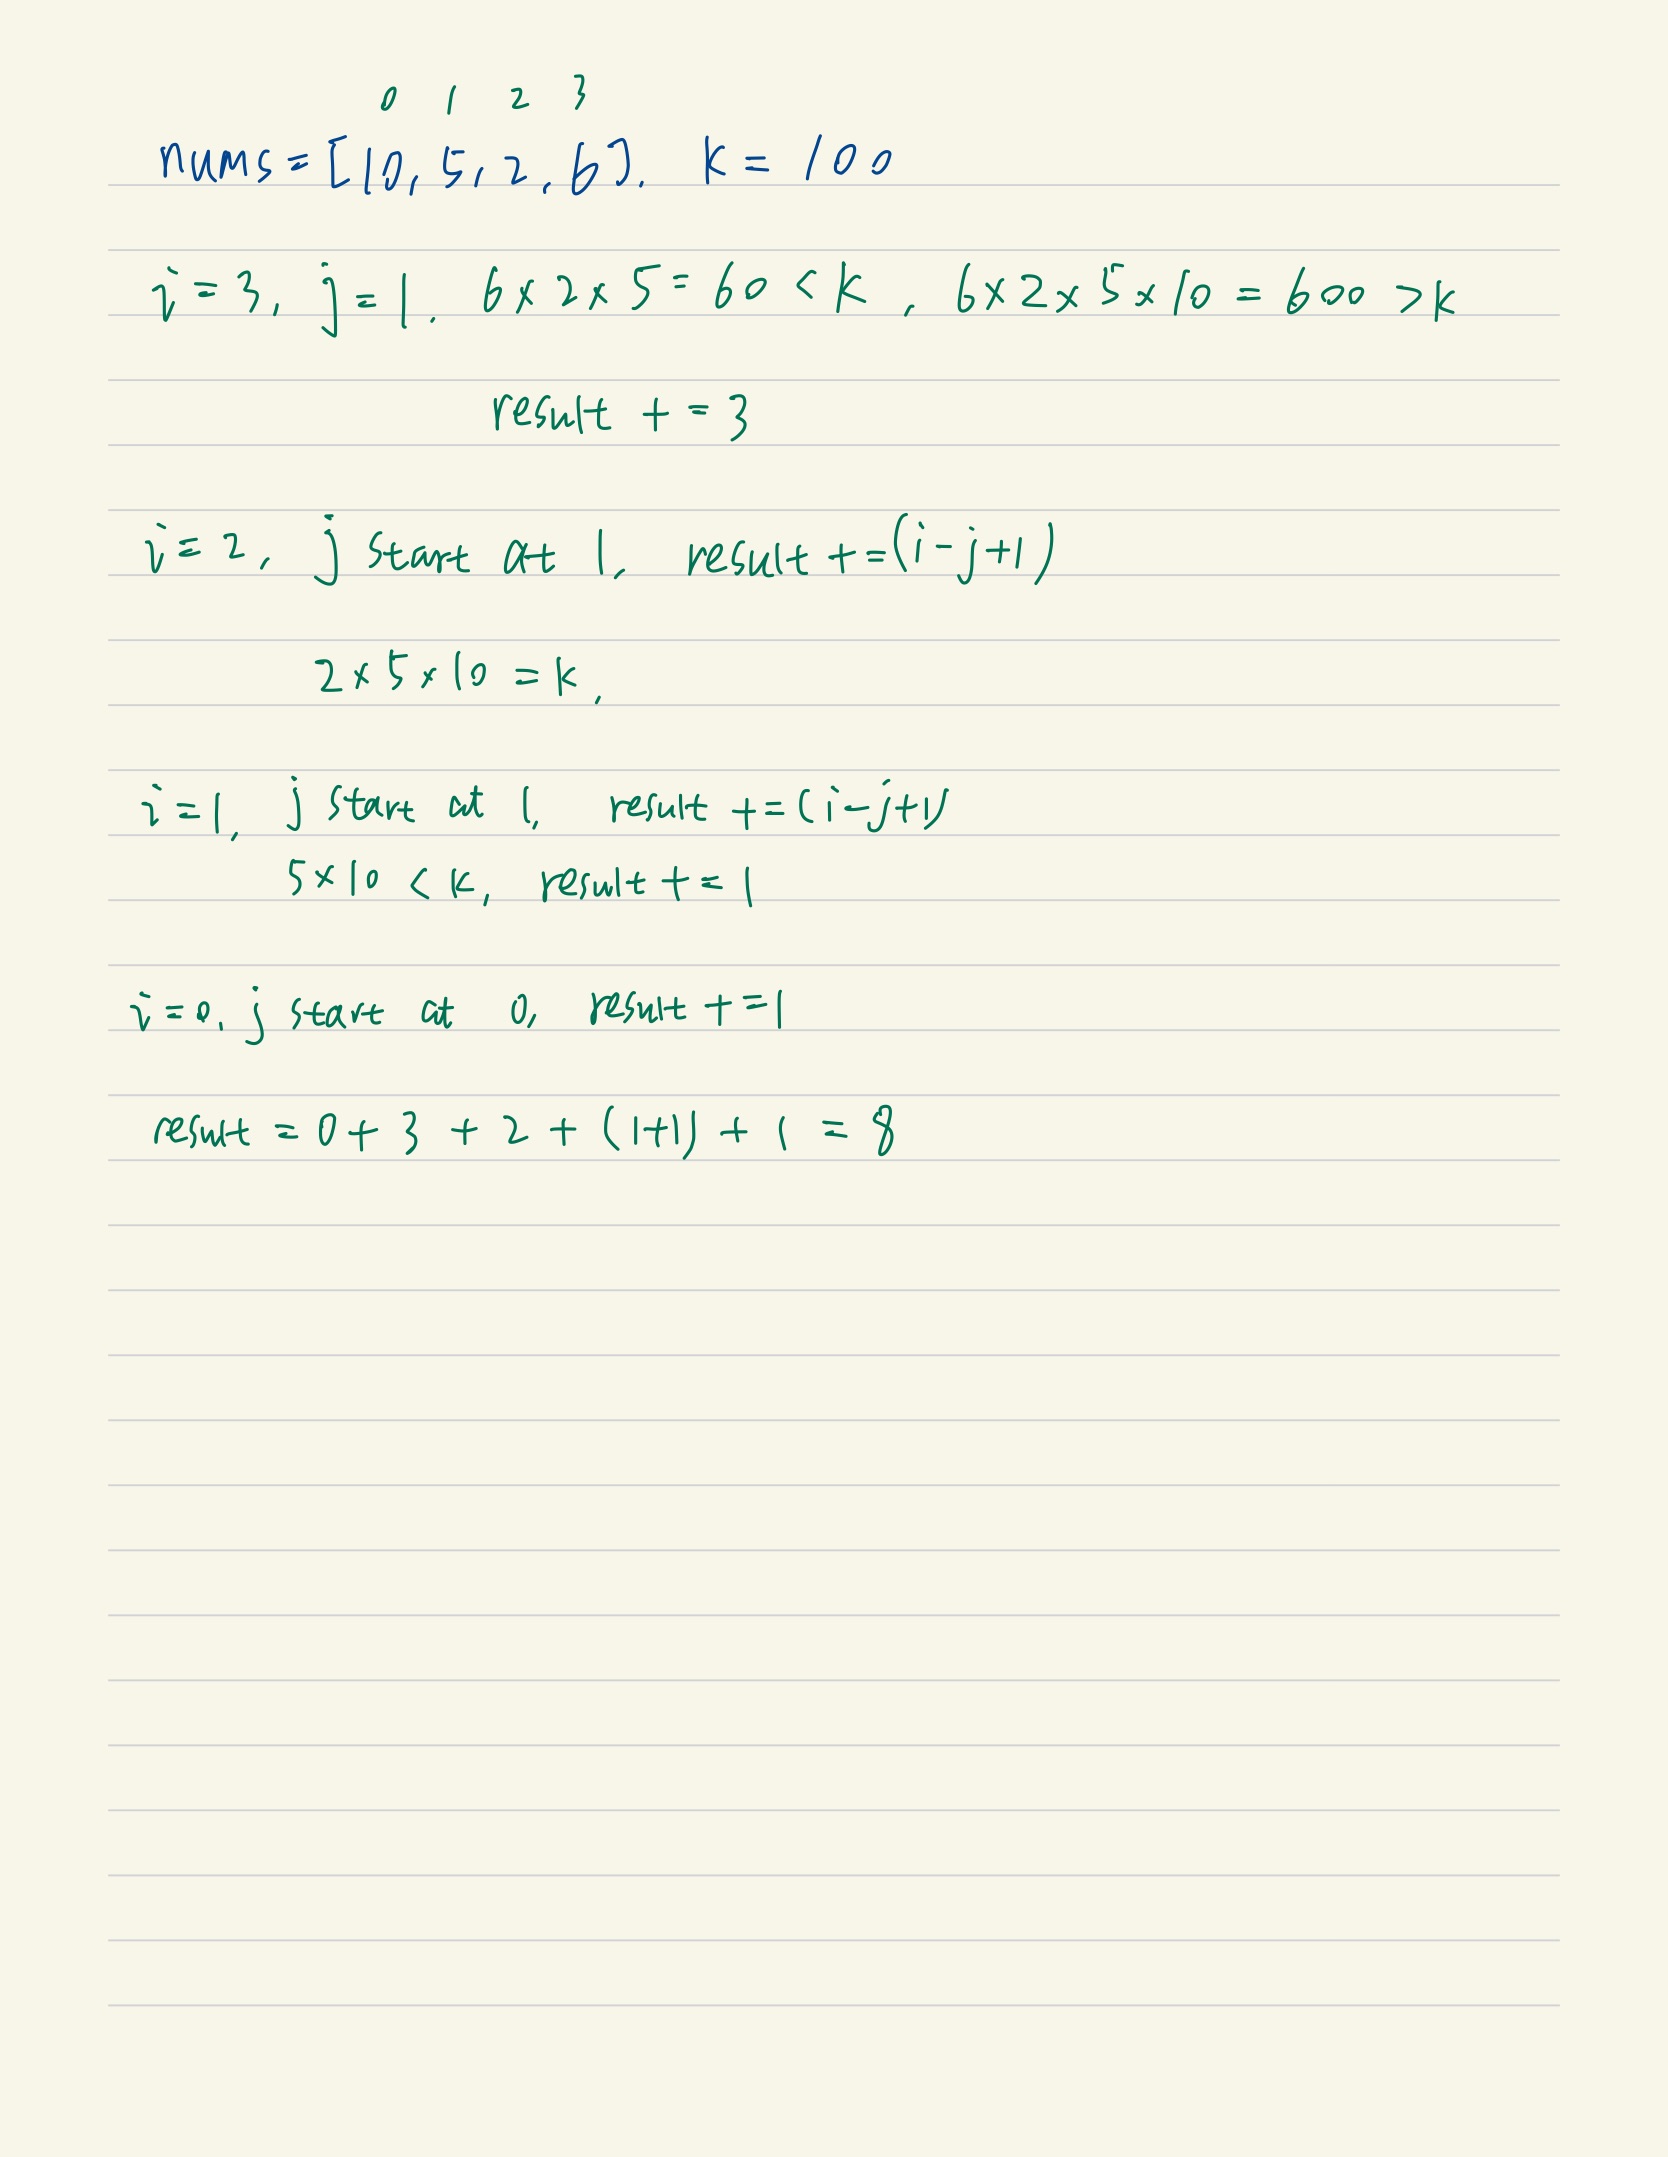 0 1 2 3
nums=[10, 5, 2, 6]. k = 100
i=3, j=1. 6×2×5=60<k, 6×2×5×10=600>k
result +=3
i=2, j start at 1, result +=(i-j+1)
2×5×10=k,
i=1, j start at 1, result +=(i-j+1)
5×10<k, result +=1
i=0. j start at 0, result +=1
result =0+3+2+(1+1)+1=8